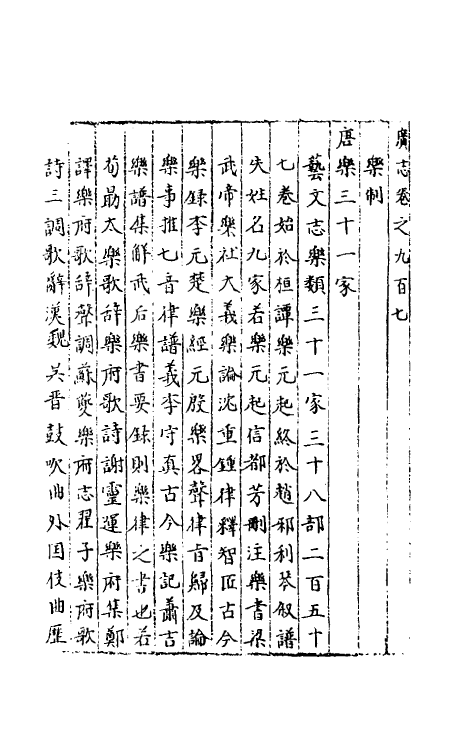 廣志卷之九百七
樂制
唐樂三十一家
藝文志樂類三十一家三十八部二百五十
七卷始於桓譚樂元起終於趙邪利琴叙譜
失姓名九家若樂元起信都芳刪注樂書梁
武帝樂社大義樂論沈重鍾律釋智匠古今
樂錄李元楚樂經元殷樂畧聲律旨歸及論
樂事推七音律譜義李守真古今樂記蕭吉
樂譜集解武后樂書要錄則樂律之書也若
荀勗太樂歌辞樂府歌詩謝靈運樂府集鄭
譯樂府歌辞聲調蘇夔樂府志翟子樂府歌
詩三調歌辭漢魏吳晋鼓吹曲外国伎曲歴